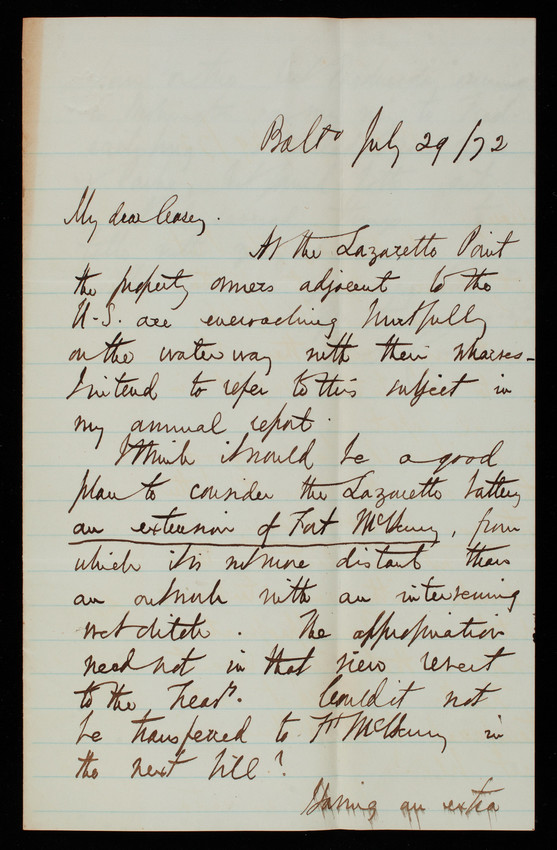 Balto July 29/72
My dear Casey.
At the Lazaretto Point
the property owners adjacent to the
U.S. are encroaching hurtfully
on the water way with their wharves_
I intend to refer to this subject in
my annual report.
I think it would be a good
plan to consider the Lazaretto battery
an extension of Fort McHenry, from
which it is no more distant than
an outwork with an intervening
wet ditch. The appropriation
need not in that view revert
to the Treasy. Could it not
be transferred to Ft McHenry in
the next bill?
Having an extra